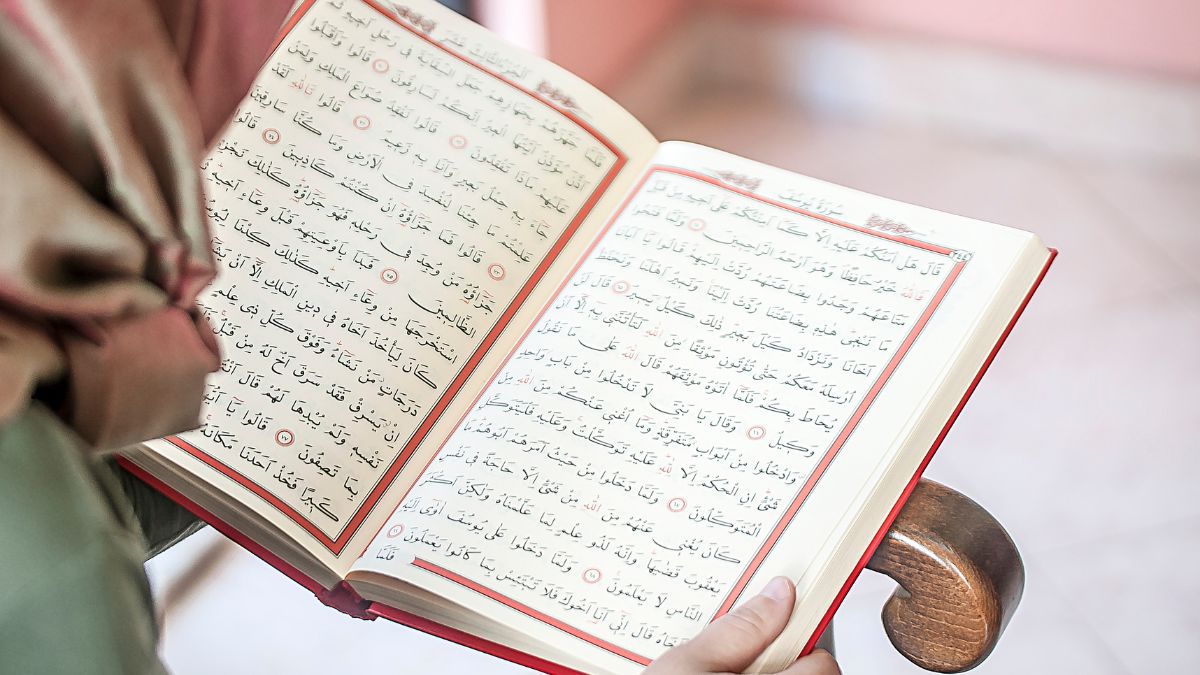 سُورَةُ يُوسُفَ
قَالَ هَلْ اٰمَنُكُمْ عَلَيْهِ اِلَّا كَمَٓا اَمِنْتُكُمْ عَلٰٓى اَخ۪يهِ مِنْ قَبْلُ
فَاللّٰهُ خَيْرٌ حَافِظًا وَهُوَ اَرْحَمُ الرَّاحِم۪ينَ ٦٤ وَلَمَّا فَتَحُوا
مَتَاعَهُمْ وَجَدُوا بِضَاعَتَهُمْ رُدَّتْ اِلَيْهِمْ قَالُوا يَٓا اَبَانَا
مَا نَبْغ۪ي هٰذِه۪ بِضَاعَتُنَا رُدَّتْ اِلَيْنَا وَنَم۪يرُ اَهْلَنَا وَنَحْفَظُ
اَخَانَا وَنَزْدَادُ كَيْلَ بَع۪يرٍ ذٰلِكَ كَيْلٌ يَس۪يرٌ ٦٥ قَالَ لَنْ
اُرْسِلَهُ مَعَكُمْ حَتّٰى تُؤْتُونِ مَوْثِقًا مِنَ اللّٰهِ لَتَأْتُنَّن۪ي بِه۪ٓ اِلَّٓا اَنْ
يُحَاطَ بِكُمْ فَلَمَّٓا اٰتَوْهُ مَوْثِقَهُمْ قَالَ اللّٰهُ عَلٰى مَا نَقُولُ
وَك۪يلٌ ٦٦ وَقَالَ يَا بَنِيَّ لَا تَدْخُلُوا مِنْ بَابٍ وَاحِدٍ
وَادْخُلُوا مِنْ اَبْوَابٍ مُتَفَرِّقَةٍ وَمَٓا اُغْن۪ي عَنْكُمْ مِنَ اللّٰهِ مِنْ
شَيْءٍ اِنِ الْحُكْمُ اِلَّا لِلّٰهِ عَلَيْهِ تَوَكَّلْتُ وَعَلَيْهِ فَلْيَتَوَكَّلِ
الْمُتَوَكِّلُونَ ٦٧ وَلَمَّا دَخَلُوا مِنْ حَيْثُ اَمَرَهُمْ اَبُوهُمْ مَا
كَانَ يُغْن۪ي عَنْهُمْ مِنَ اللّٰهِ مِنْ شَيْءٍ اِلَّا حَاجَةً ف۪ي نَفْسِ
يَعْقُوبَ قَضٰيهَا وَاِنَّهُ لَذُو عِلْمٍ لِمَا عَلَّمْنَاهُ وَلٰكِنَّ اَكْثَرَ
النَّاسِ لَا يَعْلَمُونَ ٦٨ وَلَمَّا دَخَلُوا عَلٰى يُوسُفَ اٰوٰٓى اِلَيْهِ
اَخَاهُ قَالَ اِنّ۪ٓي اَنَا۬ اَخُوكَ فَلَا تَبْتَئِسْ بِمَا كَانُوا يَعْمَلُونَ ٦٩
فَلَمَّا
اَلْجُزْءُ الثَّالِثَ عَشَرَ
فَلَمَّا جَهَّزَهُمْ بِجَهَازِهِمْ جَعَلَ السِّقَايَةَ ف۪ي رَحْلِ اَخ۪يهِ ثُمَّ
اَذَّنَ مُؤَذِّنٌ اَيَّتُهَا الْع۪يرُ اِنَّكُمْ لَسَارِقُونَ ٧٠ قَالُوا وَاَقْبَلُوا
عَلَيْهِمْ مَاذَا تَفْقِدُونَ ٧١ قَالُوا نَفْقِدُ صُوَاعَ الْمَلِكِ وَلِمَنْ
جَٓاءَ بِه۪ حِمْلُ بَع۪يرٍ وَاَنَا۬ بِه۪ زَع۪يمٌ ٧٢ قَالُوا تَاللّٰهِ لَقَدْ
عَلِمْتُمْ مَا جِئْنَا لِنُفْسِدَ فِي الْاَرْضِ وَمَا كُنَّا سَارِق۪ينَ
٧٣ قَالُوا فَمَا جَزَٓاؤُ۬هُٓ اِنْ كُنْتُمْ كَاذِب۪ينَ ٧٤ قَالُوا
جَزَٓاؤُ۬هُ مَنْ وُجِدَ ف۪ي رَحْلِه۪ فَهُوَ جَزَٓاؤُ۬هُ كَذٰلِكَ نَجْزِي
الظَّالِم۪ينَ ٧٥ فَبَدَاَ بِاَوْعِيَتِهِمْ قَبْلَ وِعَٓاءِ اَخ۪يهِ
اسْتَخْرَجَهَا مِنْ وِعَٓاءِ اَخ۪يهِ كَذٰلِكَ كِدْنَا لِيُوسُفَ
كَانَ لِيَأْخُذَ اَخَاهُ ف۪ي د۪ينِ الْمَلِكِ اِلَّٓا اَنْ
دَرَجَاتٍ مَنْ نَشَٓاءُ وَفَوْقَ كُلِّ ذ۪ي عِلْمٍ
اِنْ يَسْرِقْ فَقَدْ سَرَقَ اَخٌ لَهُ مِنْ قَبْلُ
نَفْسِه۪ وَلَمْ يُبْدِهَا لَهُمْ قَالَ اَنْتُمْ
بِمَا تَصِفُونَ ٧٧ قَالُوا يَٓا اَيُّهَا
كَب۪يرًا فَخُذْ اَحَدَنَا مَكَانَهُ